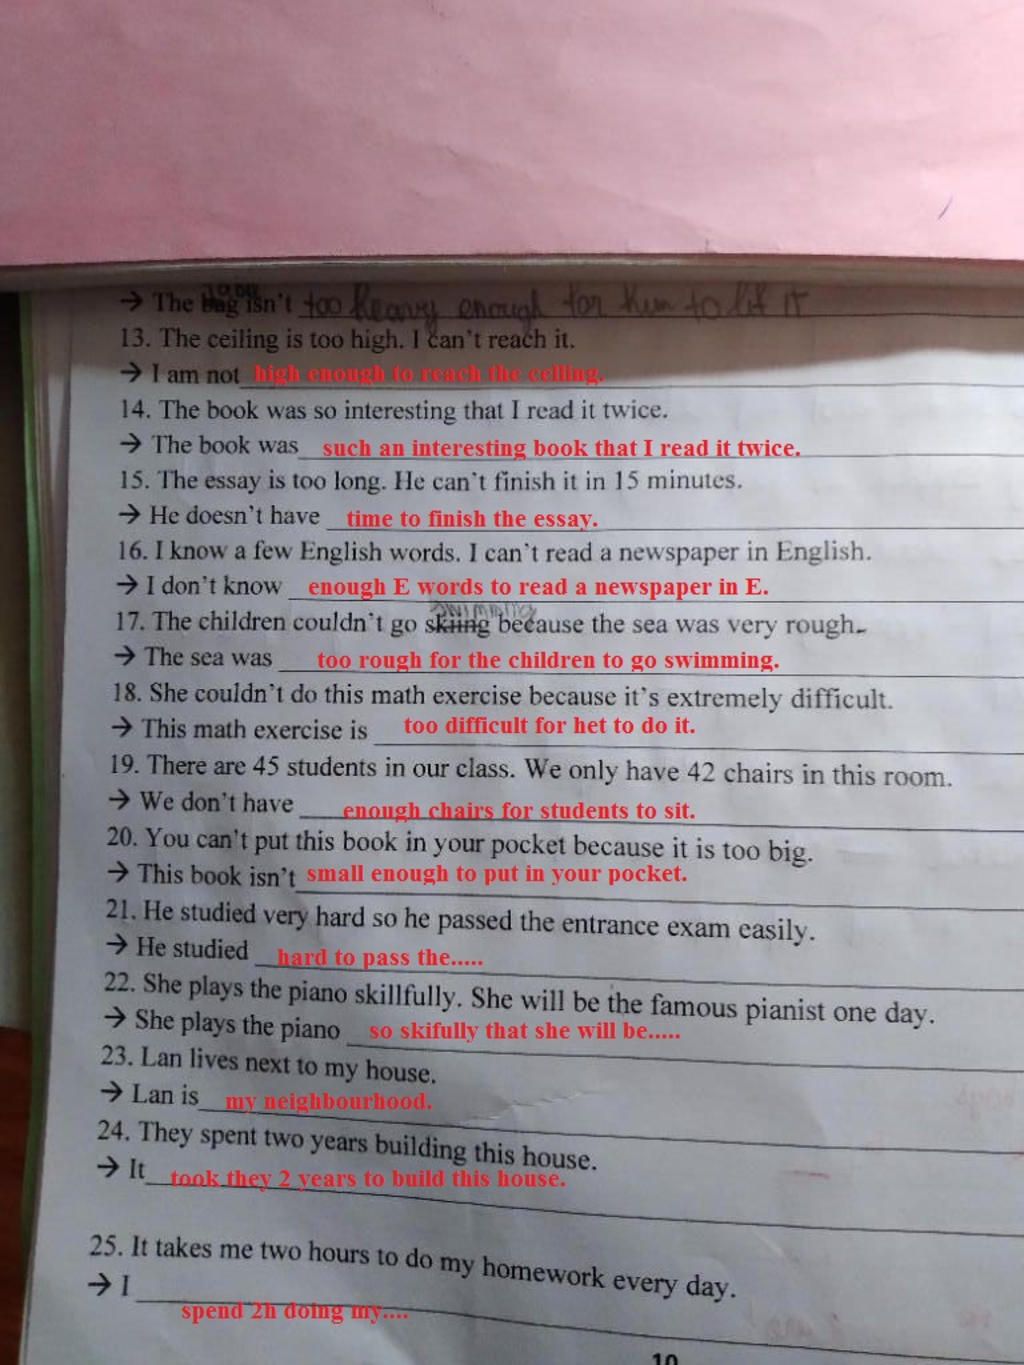 → The bag isn't too heavy enough for him to lif it
13. The ceiling is too high. I can't reach it.
→ I am not high enough to reach the ceiling.
14. The book was so interesting that I read it twice.
→ The book was such an interesting book that I read it twice.
15. The essay is too long. He can't finish it in 15 minutes.
→ He doesn't have time to finish the essay.
16. I know a few English words. I can't read a newspaper in English.
→ I don't know enough E words to read a newspaper in E.
swimming
17. The children couldn't go skiing because the sea was very rough.
→ The sea was too rough for the children to go swimming.
18. She couldn't do this math exercise because it's extremely difficult.
→ This math exercise is too difficult for het to do it.
19. There are 45 students in our class. We only have 42 chairs in this room.
→ We don't have enough chairs for students to sit.
20. You can't put this book in your pocket because it is too big.
→ This book isn't small enough to put in your pocket.
21. He studied very hard so he passed the entrance exam easily.
→ He studied hard to pass the.....
22. She plays the piano skillfully. She will be the famous pianist one day.
→ She plays the piano so skifully that she will be.....
23. Lan lives next to my house.
→ Lan is my neighbourhood.
24. They spent two years building this house.
→ It took they 2 years to build this house.
25. It takes me two hours to do my homework every day.
→ I spend 2h doing my....
10